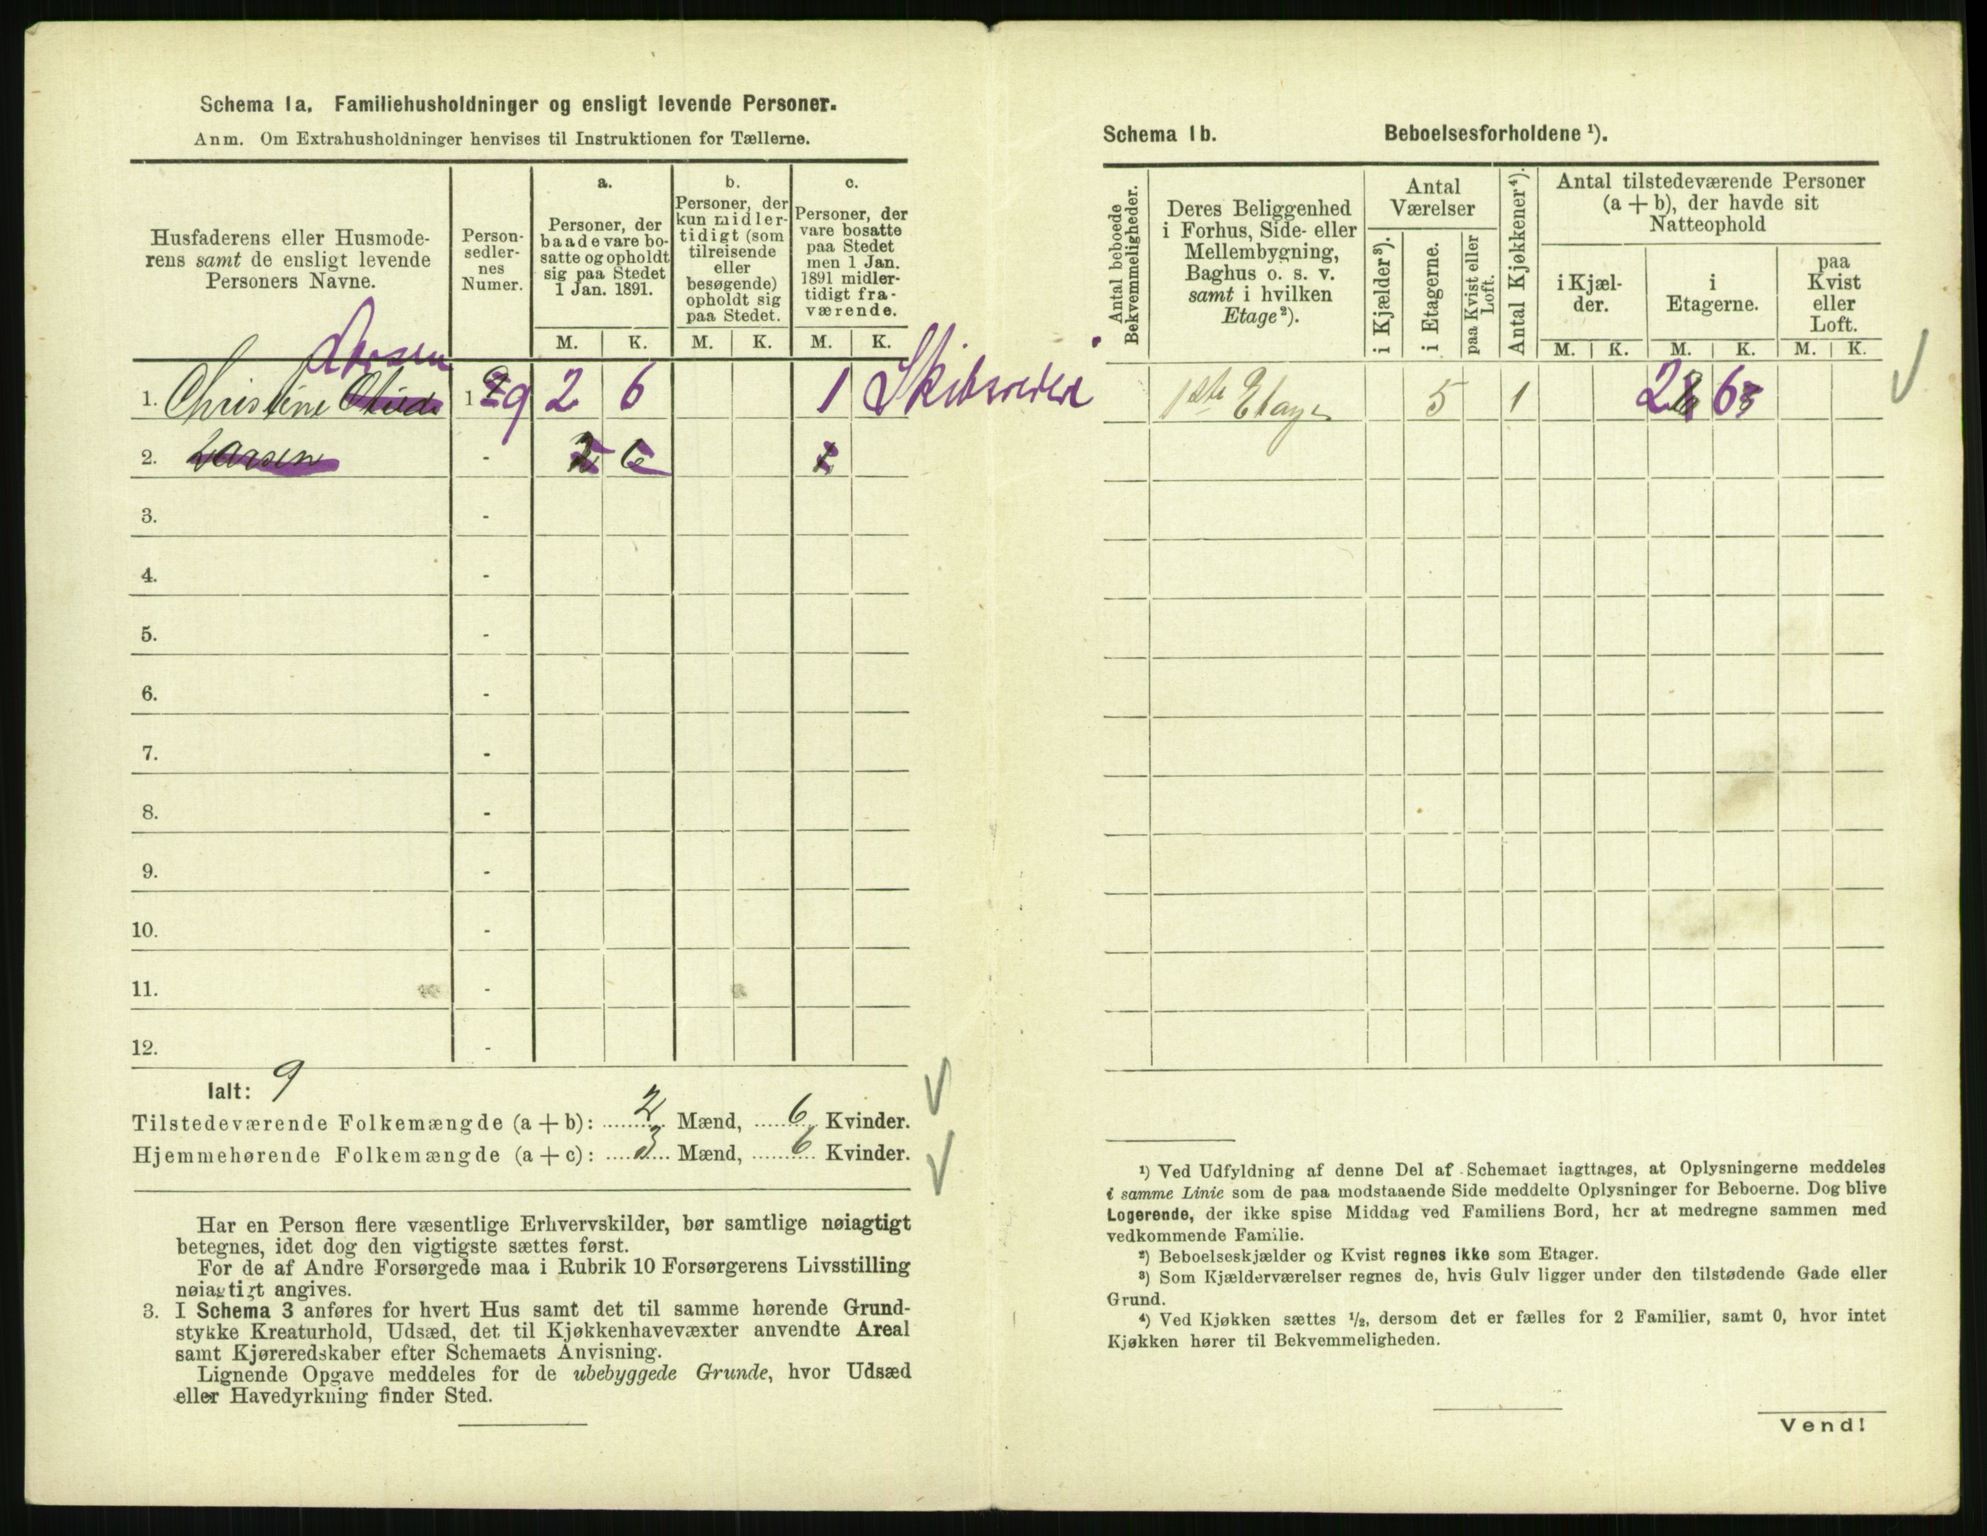 Schema 1a. Familiehusholdninger og ensligt levende Personer.
Anm. Om Extrahusholdninger henvises til Instruktionen for Tællerne.
Husfaderens eller Husmode-
rens samt de ensligt levende
Personers Navne.
Person-
sedler-
nes
Numer.
a.
Personer, der
baade vare bo-
satte og opholdt
sig paa Stedet
1 Jan. 1891.
b.
Personer, der
kun midler-
tidigt (som
tilreisende
eller
besøgende)
opholdt sig
paa Stedet.
c.
Personer, der
vare bosatte
paa Stedet
men 1 Jan.
1891 midler-
tidigt fra-
værende.
M. K. M. K. M. K.
Larsen
1. Christine 1 9 2 6 1
2. Larsen - 6
3. -
4. -
5. -
6. -
7. -
8. -
9. -
10. -
11. -
12. -
Ialt: 9
Tilstedeværende Folkemængde (a + b): 2 Mænd, 6 Kvinder.
Hjemmehørende Folkemængde (a + c): 3 Mænd, 6 Kvinder.
Har en Person flere væsentlige Erhvervskilder, bør samtlige nøiagtigt
betegnes, idet dog den vigtigste sættes først.
For de af Andre Forsørgede maa i Rubrik 10 Forsørgerens Livsstilling
nøiagtigt angives.
3. I Schema 3 anføres for hvert Hus samt det til samme hørende Grund-
stykke Kreaturhold, Udsæd, det til Kjøkkenhavevæxter anvendte Areal
samt Kjøreredskaber efter Schemaets Anvisning.
Lignende Opgave meddeles for de ubebyggede Grunde, hvor Udsæd
eller Havedyrkning finder Sted.
Schema 1b. Beboelsesforholdene ¹).
Antal beboede
Bekvemmeligheder.
Deres Beliggenhed
i Forhus, Side- eller
Mellembygning,
Baghus o. s. v.
samt i hvilken
Etage²).
Antal
Værelser
i Kjælder³).
i Etagerne.
paa Kvist eller
Loft.
Antal Kjøkkener⁴).
Antal tilstedeværende Personer
(a + b), der havde sit
Natteophold
i Kjæl-
der.
i
Etagerne.
paa
Kvist
eller
Loft.
M. K. M. K. M. K.
1ste Etage 5 1 2 6
¹) Ved Udfyldning af denne Del af Schemaet iagttages, at Oplysningerne meddeles
i samme Linie som de paa modstaaende Side meddelte Oplysninger for Beboerne. Dog blive
Logerende, der ikke spise Middag ved Familiens Bord, her at medregne sammen med
vedkommende Familie.
²) Beboelseskjælder og Kvist regnes ikke som Etager.
³) Som Kjælderværelser regnes de, hvis Gulv ligger under den tilstødende Gade eller
Grund.
⁴) Ved Kjøkken sættes ½, dersom det er fælles for 2 Familier, samt 0, hvor intet
Kjøkken hører til Bekvemmeligheden.
Vend!